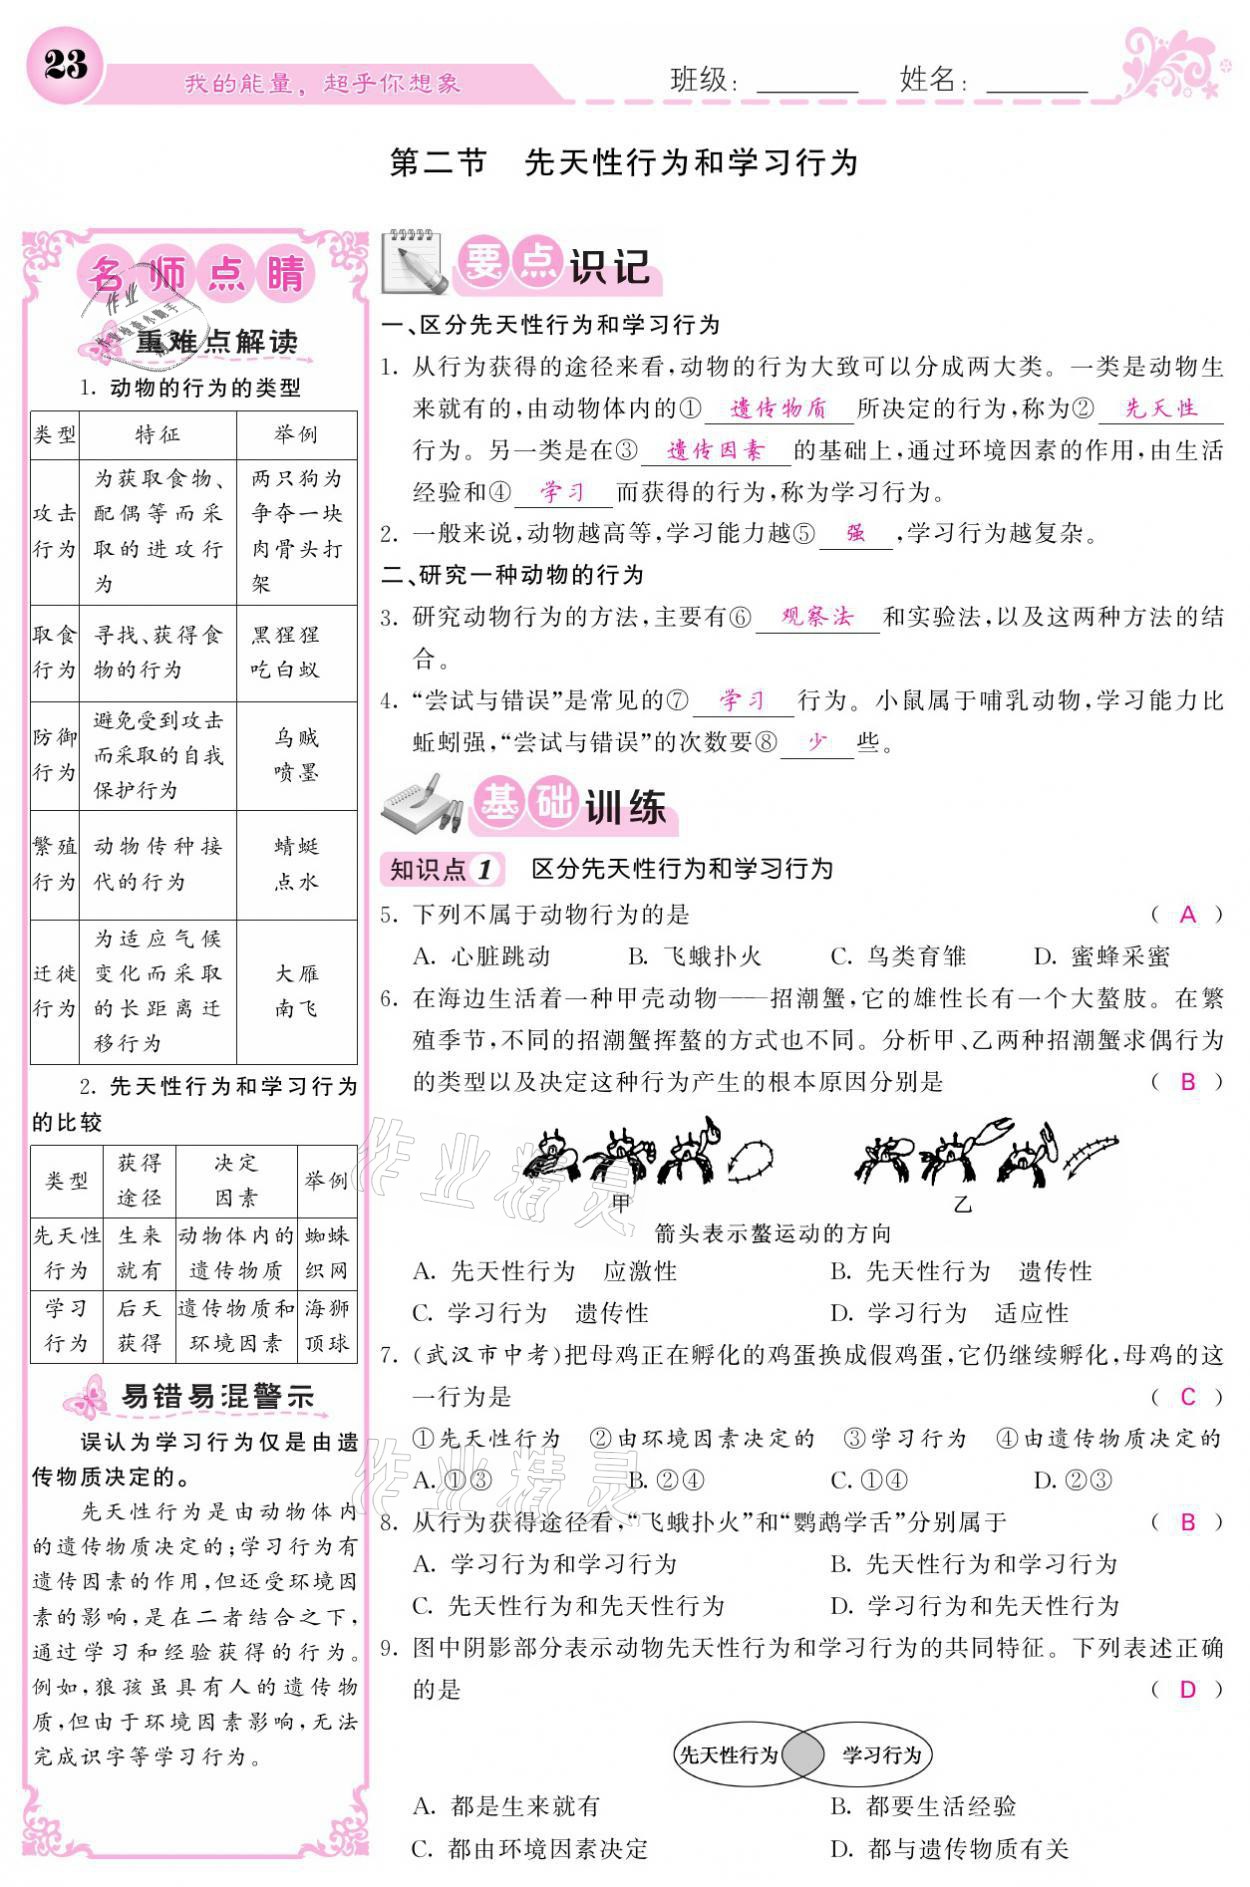 23
我的能量，超乎你想象
班级：
姓名：
第二节 先天性行为和学习行为
名师点睛
重难点解读
1. 动物的行为的类型
类型 特征 举例
攻击行为 为获取食物、配偶等而采取的进攻行为 两只狗为争夺一块肉骨头打架
取食行为 寻找、获得食物的行为 黑猩猩吃白蚁
防御行为 避免受到攻击而采取的自我保护行为 乌贼喷墨
繁殖行为 动物传种接代的行为 蜻蜓点水
迁徙行为 为适应气候变化而采取的长距离迁移行为 大雁南飞
2. 先天性行为和学习行为
的比较
类型 获得途径 决定因素 举例
先天性行为 生来就有 动物体内的遗传物质 蜘蛛织网
学习行为 后天获得 遗传物质和环境因素 海狮顶球
易错易混警示
误认为学习行为仅是由遗
传物质决定的。
先天性行为是由动物体内
的遗传物质决定的；学习行为有
遗传因素的作用，但还受环境因
素的影响，是在二者结合之下，
通过学习和经验获得的行为。
例如，狼孩虽具有人的遗传物
质，但由于环境因素影响，无法
完成识字等学习行为。
要点识记
一、区分先天性行为和学习行为
1. 从行为获得的途径来看，动物的行为大致可以分成两大类。一类是动物生
来就有的，由动物体内的① 遗传物质 所决定的行为，称为② 先天性
行为。另一类是在③ 遗传因素 的基础上，通过环境因素的作用，由生活
经验和④ 学习 而获得的行为，称为学习行为。
2. 一般来说，动物越高等，学习能力越⑤ 强 ，学习行为越复杂。
二、研究一种动物的行为
3. 研究动物行为的方法，主要有⑥ 观察法 和实验法，以及这两种方法的结
合。
4. “尝试与错误”是常见的⑦ 学习 行为。小鼠属于哺乳动物，学习能力比
蚯蚓强，“尝试与错误”的次数要⑧ 少 些。
基础训练
知识点 1 区分先天性行为和学习行为
5. 下列不属于动物行为的是 （ A ）
A. 心脏跳动 B. 飞蛾扑火 C. 鸟类育雏 D. 蜜蜂采蜜
6. 在海边生活着一种甲壳动物——招潮蟹，它的雄性长有一个大螯肢。在繁
殖季节，不同的招潮蟹挥螯的方式也不同。分析甲、乙两种招潮蟹求偶行为
的类型以及决定这种行为产生的根本原因分别是 （ B ）
甲 乙
箭头表示螯运动的方向
A. 先天性行为 应激性 B. 先天性行为 遗传性
C. 学习行为 遗传性 D. 学习行为 适应性
7. （武汉市中考）把母鸡正在孵化的鸡蛋换成假鸡蛋，它仍继续孵化，母鸡的这
一行为是 （ C ）
①先天性行为 ②由环境因素决定的 ③学习行为 ④由遗传物质决定的
A. ①③ B. ②④ C. ①④ D. ②③
8. 从行为获得途径看，“飞蛾扑火”和“鹦鹉学舌”分别属于 （ B ）
A. 学习行为和学习行为 B. 先天性行为和学习行为
C. 先天性行为和先天性行为 D. 学习行为和先天性行为
9. 图中阴影部分表示动物先天性行为和学习行为的共同特征。下列表述正确
的是 （ D ）
先天性行为 学习行为
A. 都是生来就有 B. 都要生活经验
C. 都由环境因素决定 D. 都与遗传物质有关
作业精灵
作业精灵